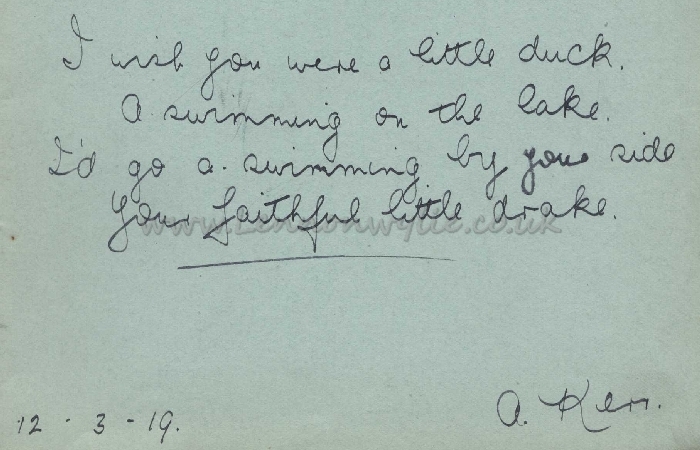 I wish you were a little duck.
A swimming on the lake.
I'd go a swimming by your side
Your faithful little drake.
A. Kerr.
12 - 3 - 19.